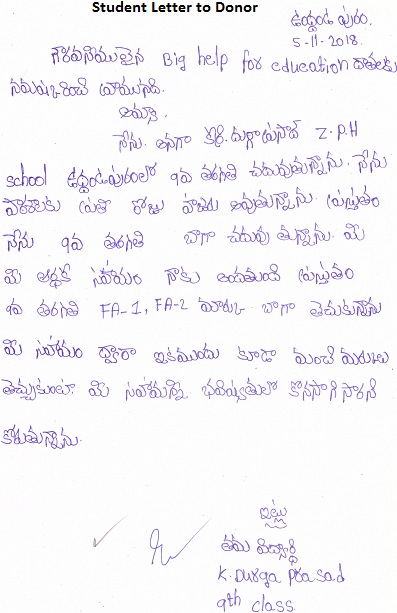 Student Letter to Donor
ఉద్దండ పురం.
5-11-2018.
గౌరవనీయులైన Big help for education దాతలకు
నమష్కరించి వ్రాయునది.
అమ్మా.
నేను. అనగా కోరి.దుర్గాప్రసాద్ Z.P.H
school ఉద్దండపురంలో 9వ తరగతి చదువుతున్నాను. నేను
పాఠశాలకు ప్రతి రోజు హాజరు అవుతున్నాను. ప్రస్తుతం
నేను 9వ తరగతి బాగా చదువు తున్నాను. మీ
మీ ఆర్థిక సహాయం నాకు అందుతుంది ప్రస్తుతం
9వ తరగతి FA-1, FA-2 మార్కు బాగా తెచుకున్నాను
మీ సహాయం ద్వారా ఇకముందు కూడా మంచి మార్కులు
తెచ్చుకుంటా. మీ సహాయాన్ని భవిష్యత్తులో కొనసాగిస్తారని
కోరుతున్నాను.
ఇట్లు
తమ విద్యార్థి
K. Durga prasad
9th class